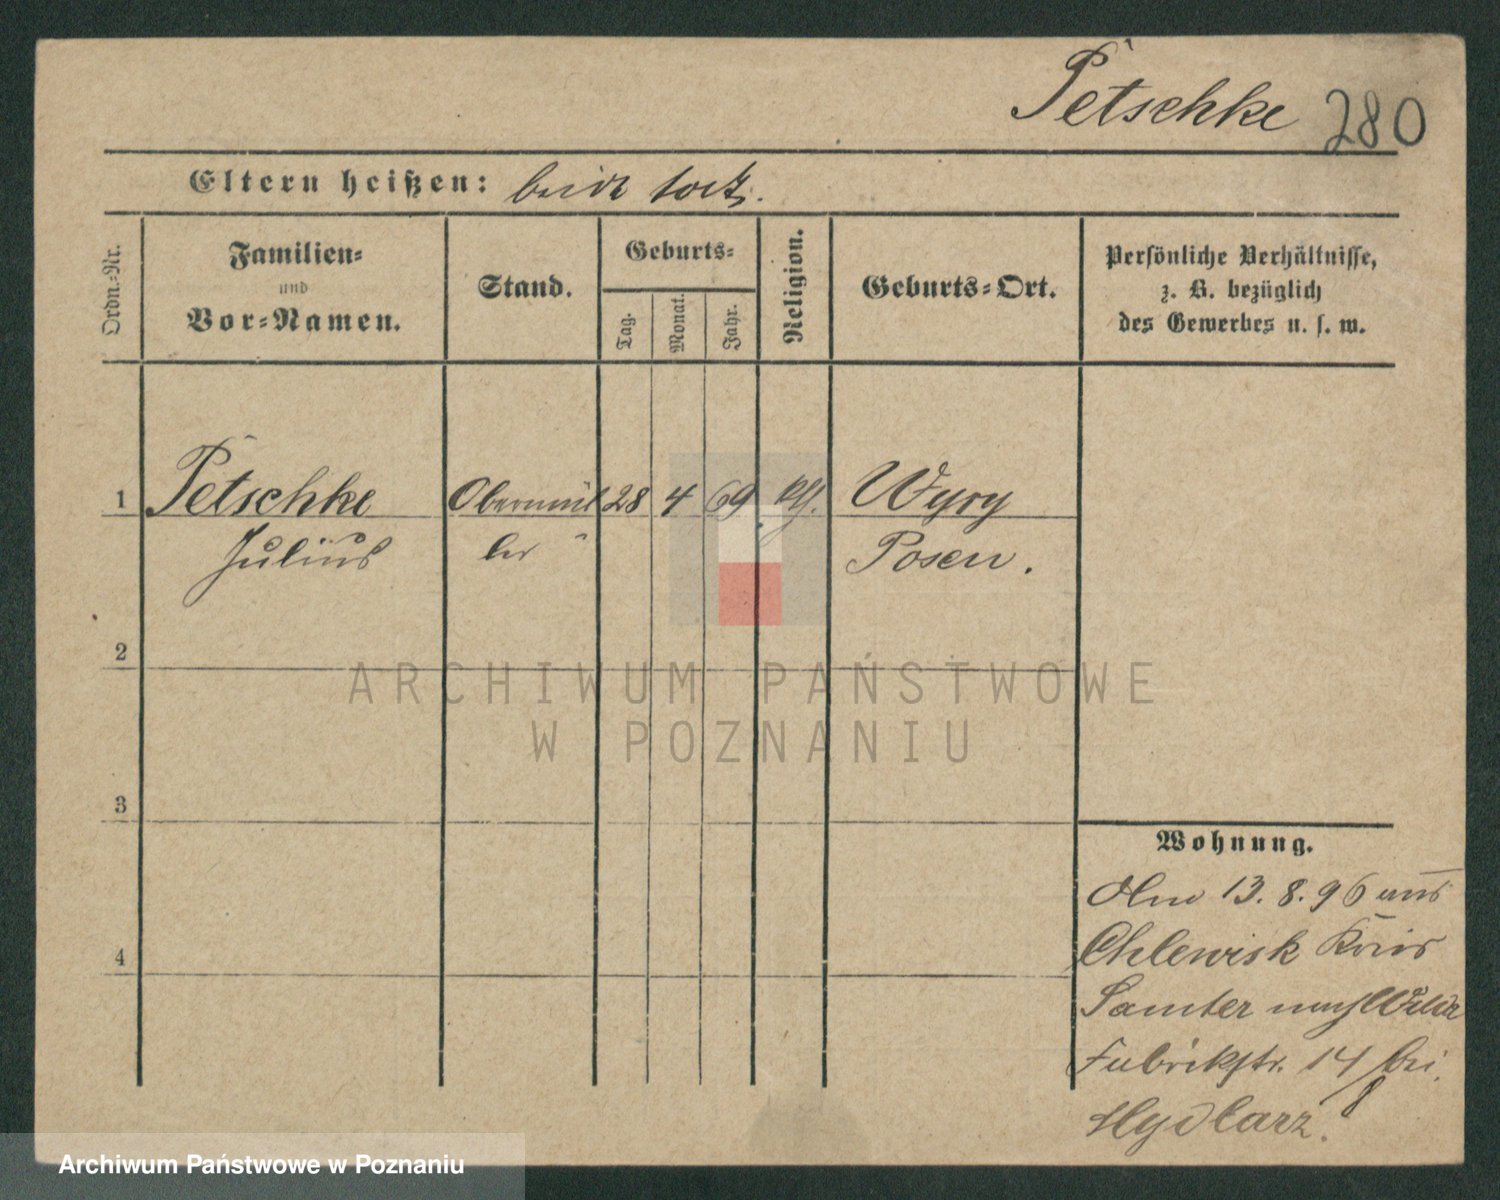 Petschke 280
Eltern heißen: beide todt.
Ordn.-Nr.
Familien-
und
Vor-Namen.
Stand.
Geburts-
Tag.
Monat.
Jahr.
Religion.
Geburts-Ort.
Persönliche Verhältnisse,
z. B. bezüglich
des Gewerbes u. s. w.
1 Petschke Obermül 28 4 69 Wyry
Julius ler Posen.
2
ARCHIWUM PAŃSTWOWE
W POZNANIU
3
Wohnung.
13. 8. 96 aus
4
Chlewisk Kreis
Samter nach Wilda
Fabrikstr. 14 bei
8
Hydlarz.
Archiwum Państwowe w Poznaniu